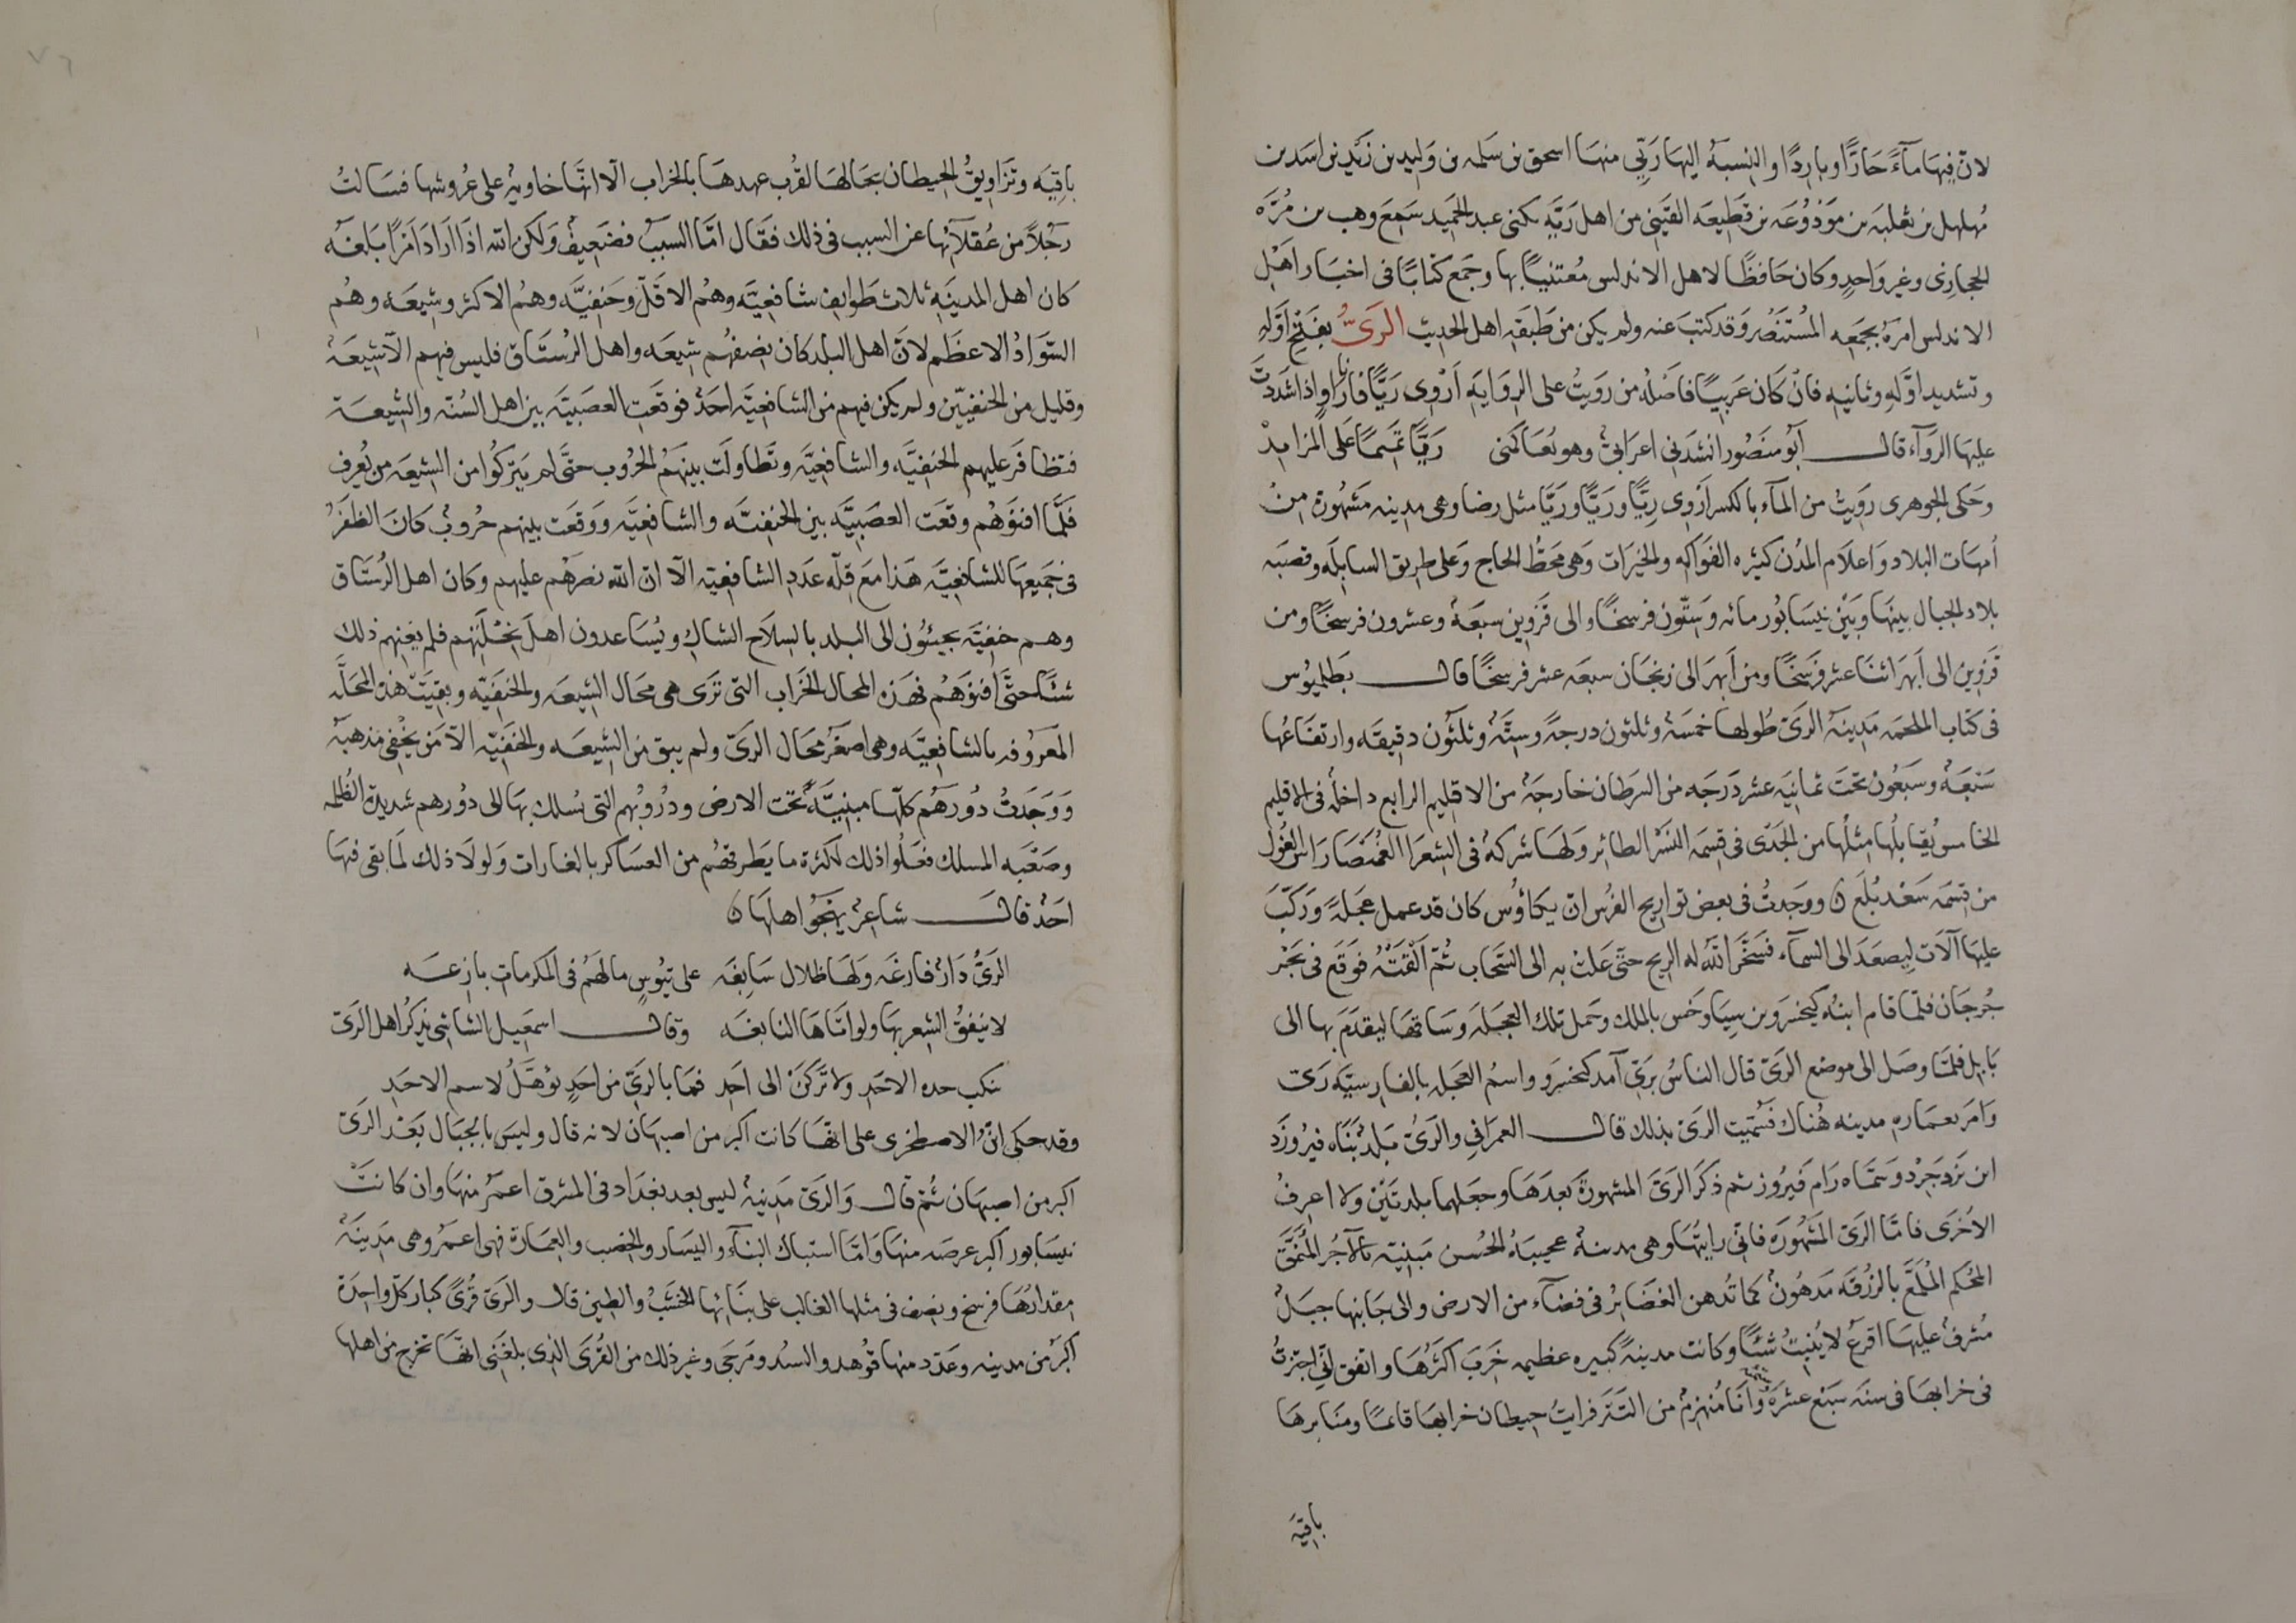 لان فيها مآءً حارًّا وباردًا والنسبة اليها رَيّي منها اسحق بن سلمه بن وليد بن زيد بن اسد بن
مُهلهل بن ثعلبة بن مَوْدُوعَه بن قطيعه القَيني من اهل رَيّه يكنى عبد الحميد سَمِعَ وهب بن مُرَّه
الحجاري وغير واحدٍ وكان حافظًا لاهل الاندلس مُعتنيًا بها وجَمع كتابًا فى اخبار اهل
الاندلس امرَهُ بجمعه المُستنصر وقد كتبَ عنه ولم يكن من طبقه اهل الحديث الرَىُّ بفتح اوّله
وتشديد اوّله وثانيه فان كان عَربيًّا فاصله من رويتُ على الروايه اَرْوى رَيًّا فانا راوٍ اذا شددتَ
عليها الروآء قال ابو منصور انشدنى اعرابىٌّ وهو يُعاكمنى رَيًّا تميمًا على المزايدْ
وحكى الجوهرى رَويتُ من المآء بالكسر اَرْوى رِيًّا ورَيًّا ورِيًّا مثل رضا وهى مدينه مَشهُورة من
اُمهات البلاد واعلام المُدن كثيره الفواكه والخيرات وهى محَطُّ الحاج وعلى طريق السابله وقصبه
بلاد الجبال بينها وبَيْن نيسابُور مائه وستّون فرسخًا والى قَزوِين سبعَةٌ وعشرون فرسخًا ومن
قزوين الى اَبهَر اثنا عشر فرسخًا ومن اَبهَر الى زنجان سبعه عشر فرسخًا قال بطلميُوس
فى كتاب الملحمه مدينهُ الرَىّ طُولها خمسَةٌ وثلثون درجةً وستَّةٌ وثلثُون دقيقَه وارتفاعُها
سَبعَةٌ وسَبعُون تحتَ ثمانيَه عشر دَرَجه من السرطان خارجَةٌ من الاقليم الرابع داخلةٌ فى الاقليم
الخامس يُقابلها مثلُها من الجدى فى قسمه النَسْر الطائر وَلها شركةٌ فى الشِعرَا الغُمَيصَا راسُ الغُول
من قِسْمَه سَعْد بُلَع ن ووجدتُ فى بعض تواريخ الفُرس ان كيكاؤُس كان قد عمل عَجَلةً ورَكّبَ
عليها آلات ليصعَدَ الى السمآء فسَخَّر اللّه له الريح حتّى عَلتْ به الى السَحاب ثُمّ اَلقَتْهُ فوَقع فى بَحْر
جُرجَان فلمّا قام ابنُه كيخسرو بن سياوخس بالملك وحَمل تلك العجَلَه وسَاقها ليقدَمَ بها الى
بَابل فلمّا وصَل الى موضع الرَىّ قال الناسُ بَرَىّ آمد كيخسرو واسمُ العجَله بالفارسيّه رَى
وامَر بعمارهِ مدينه هُناك فسُمّيت الرَىّ بذلك قال العمرانى والرَىُّ بَلدٌ بَنَاه فيروز
ابن يَزدَجرْد وسمّاه رَام فيروز ثم ذكَر الرَىَّ المشهُورةَ بَعدَها وجعَلهما بلدتَيْن ولا اعرفُ
الاُخرَى فامّا الرَىّ المَشهُورَه فانّى رايتُها وهى مدينةٌ عجيبَهُ الحُسن مَبنيّه بالآجُر المُنَمَّق
المُحكم المُلمَّعَ بالزُرْقَه مَدهُونٌ كما تُدهن الغضائرُ فى فضآء من الارض والى جَانبها جبَلٌ
مُشرفٌ عليها اقرَعُ لا يُنبتُ شئًا وكانت مدينةً كبيره عظيمه خَربَ اكثرُها واتفق انّى اجتزتُ
فى خرابها فى سنه سَبْع عشرَةَ وانَا مُنهزمٌ من التَتَر فرايتُ حيطان خرابها قائمًا ومنابرها
باقيَه
باقيَه وتَزاويقُ الحيطان بحَالها لقُرب عهدها بالخراب الآ انّها خاويهٌ على عُروشها فسَالتُ
رجُلاً من عُقلآئها عن السبب فى ذلك فقَال امّا السببُ فضَعيفٌ وَلكن اللّه اذا ارَادَ اَمْرًا بَلغَهُ
كان اهل المدينَه ثلاث طوايف شافعيّه وهُم الاقَلّ وحَنفيَّه وهُم الاكثر وشيعَه وهُم
السَوادُ الاعظَم لانّ اهل البلد كان نصفُهُم شيعَه واهل الرُستاق فليس فيهم الّا شيعَةٌ
وقليل من الحنفيّين ولم يكن فيهم من الشافعيّه احَدٌ فوقعَت العصَبيّه بين اهل السُنّه والشيعَة
فتظافَر عليهم الحَنفيَّه والشافعيَّه وتَطاولَت بينَهُم الحُروب حتَّى لم يَتركُوا من الشيعَه من يُعرف
فلمَّا افنوهُم وقعَت العصَبيَّه بين الحَنفيَّه والشافعيَّه ووَقعَت بينهم حُروبٌ كانَ الظفَرُ
فى جَميعهَا للشافعيَّه هَذا مَع قِلّه عَدَدِ الشافعيّه الآ انّ اللّه نصَرَهُم عليهم وكان اهل الرُستاق
وهم حنفيَّه يجيئُون الى البلد بالسلاح الشاك ويُسَاعدون اهلَ نحْلَتهم فلم يُغنهم ذلك
شئًا حتَّى افنوهُم فهَذه المحال الخرَاب التى تَرَى هى محَال الشيعَه والحنفَيّه وبَقيَتْ هذه المحَلَّه
المَعرُوفه بالشافعيَّه وهى اصغَرُ محَال الرَىّ ولم يبق من الشيعَه والحَنفيّه الّا مَن يُخْفى مَذهبَهُ
ووَجَدتُ دُورَهُم كلّها مبنيّةً تحت الارض ودُرُوبُهم التى يُسلك بهَا الى دُورهم شديدة الظُلمه
وصَعبَه المسلك فعَلُوا ذلك لكثرة ما يَطرقهُم من العسَاكر بالغارات وَلولَا ذلك لَما بقى فيها
احَدٌ قال شاعرٌ يَهجُوا اهلَها ن
الرَىُّ دَارٌ فارغَه وَلهَا ظلال سَابغَه على تيُوسٍ ما لَهُم فى المكرمات بازغَه
لا يَنفقُ الشعر بهَا ولو اتَاها النابغَه وقال اسمعيل الشاشى يَذكُر اهل الرَى
تنكب حده الاحَدِ ولا تَركَنْ الى احَدٍ فما بالرَىّ من احَدٍ يُؤَهَّلُ لاسم الاحَدِ
وقد حكى انّ الاصطخرى على انّها كانت اكبر من اصبهَان لانه قال وليسَ بالجبَال بَعْد الرَىّ
اكبر من اصبهَان ثُمّ قال وَالرَىّ مَدينةٌ ليس بعد بغدَاد فى المشرق اعمَرُ منها وان كانَتْ
نيسَابور اكبر عرصه منهَا وَامّا اشتباك البنآء واليسَار والخصب والعِمَارة فهى اعمَرُ وهى مَدينَةٌ
مقدارُها فرسخ ونصف فى مثلها الغالب على بنَائها الخشَبُ والطين قال والرَىّ قُرًى كبار كلّ واحدَة
اكبَرُ من مدينه وعَدد منها قُوهد والسُد ومَرجَى وغير ذلك من القُرَى الذى بلغَنى انّها تخرج من اهلها